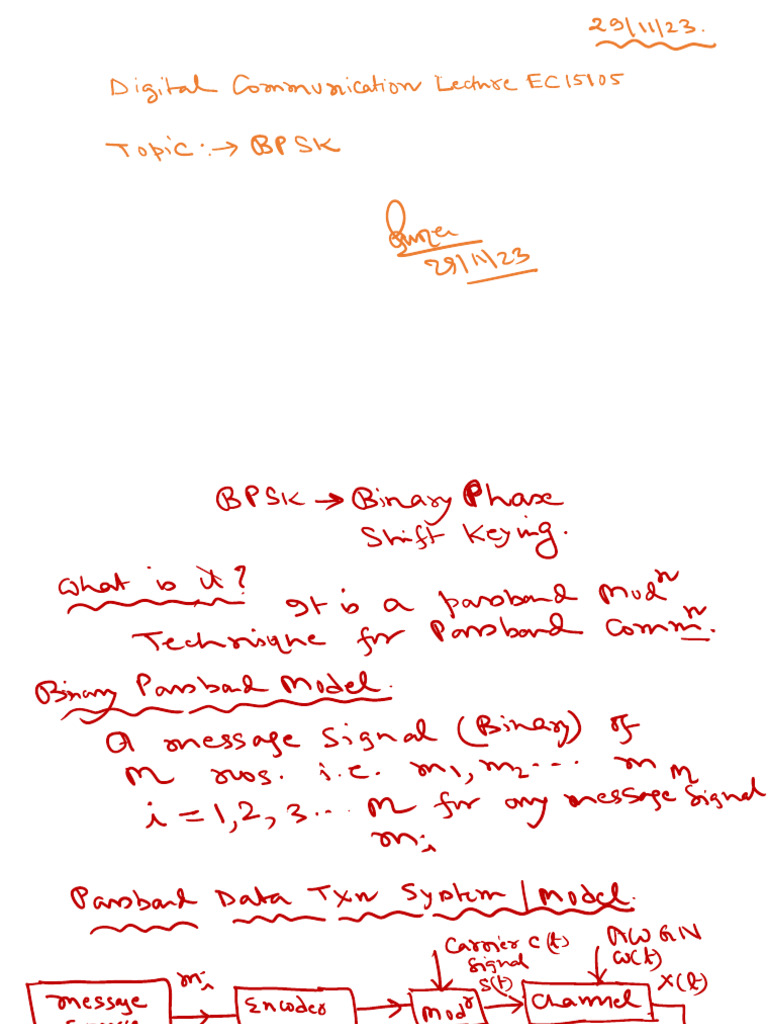 29/11/23.
Digital Communication Lecture EC15105
Topic:→ BPSK
29/11/23
BPSK → Binary Phase
Shift Keying.
What is it?
It is a passband Modⁿ
Technique for Passband Commⁿ.
Binary Passband Model.
A message signal (Binary) of
M nos. i.e. m₁, m₂ ... m_M
i = 1, 2, 3 ... M for any message signal
mᵢ
Passband Data Txn System / Model.
Carrier c(t)
signal
AWGN
w(t)
mᵢ
s(t)
x(t)
message
Encoder
Modʳ
Channel